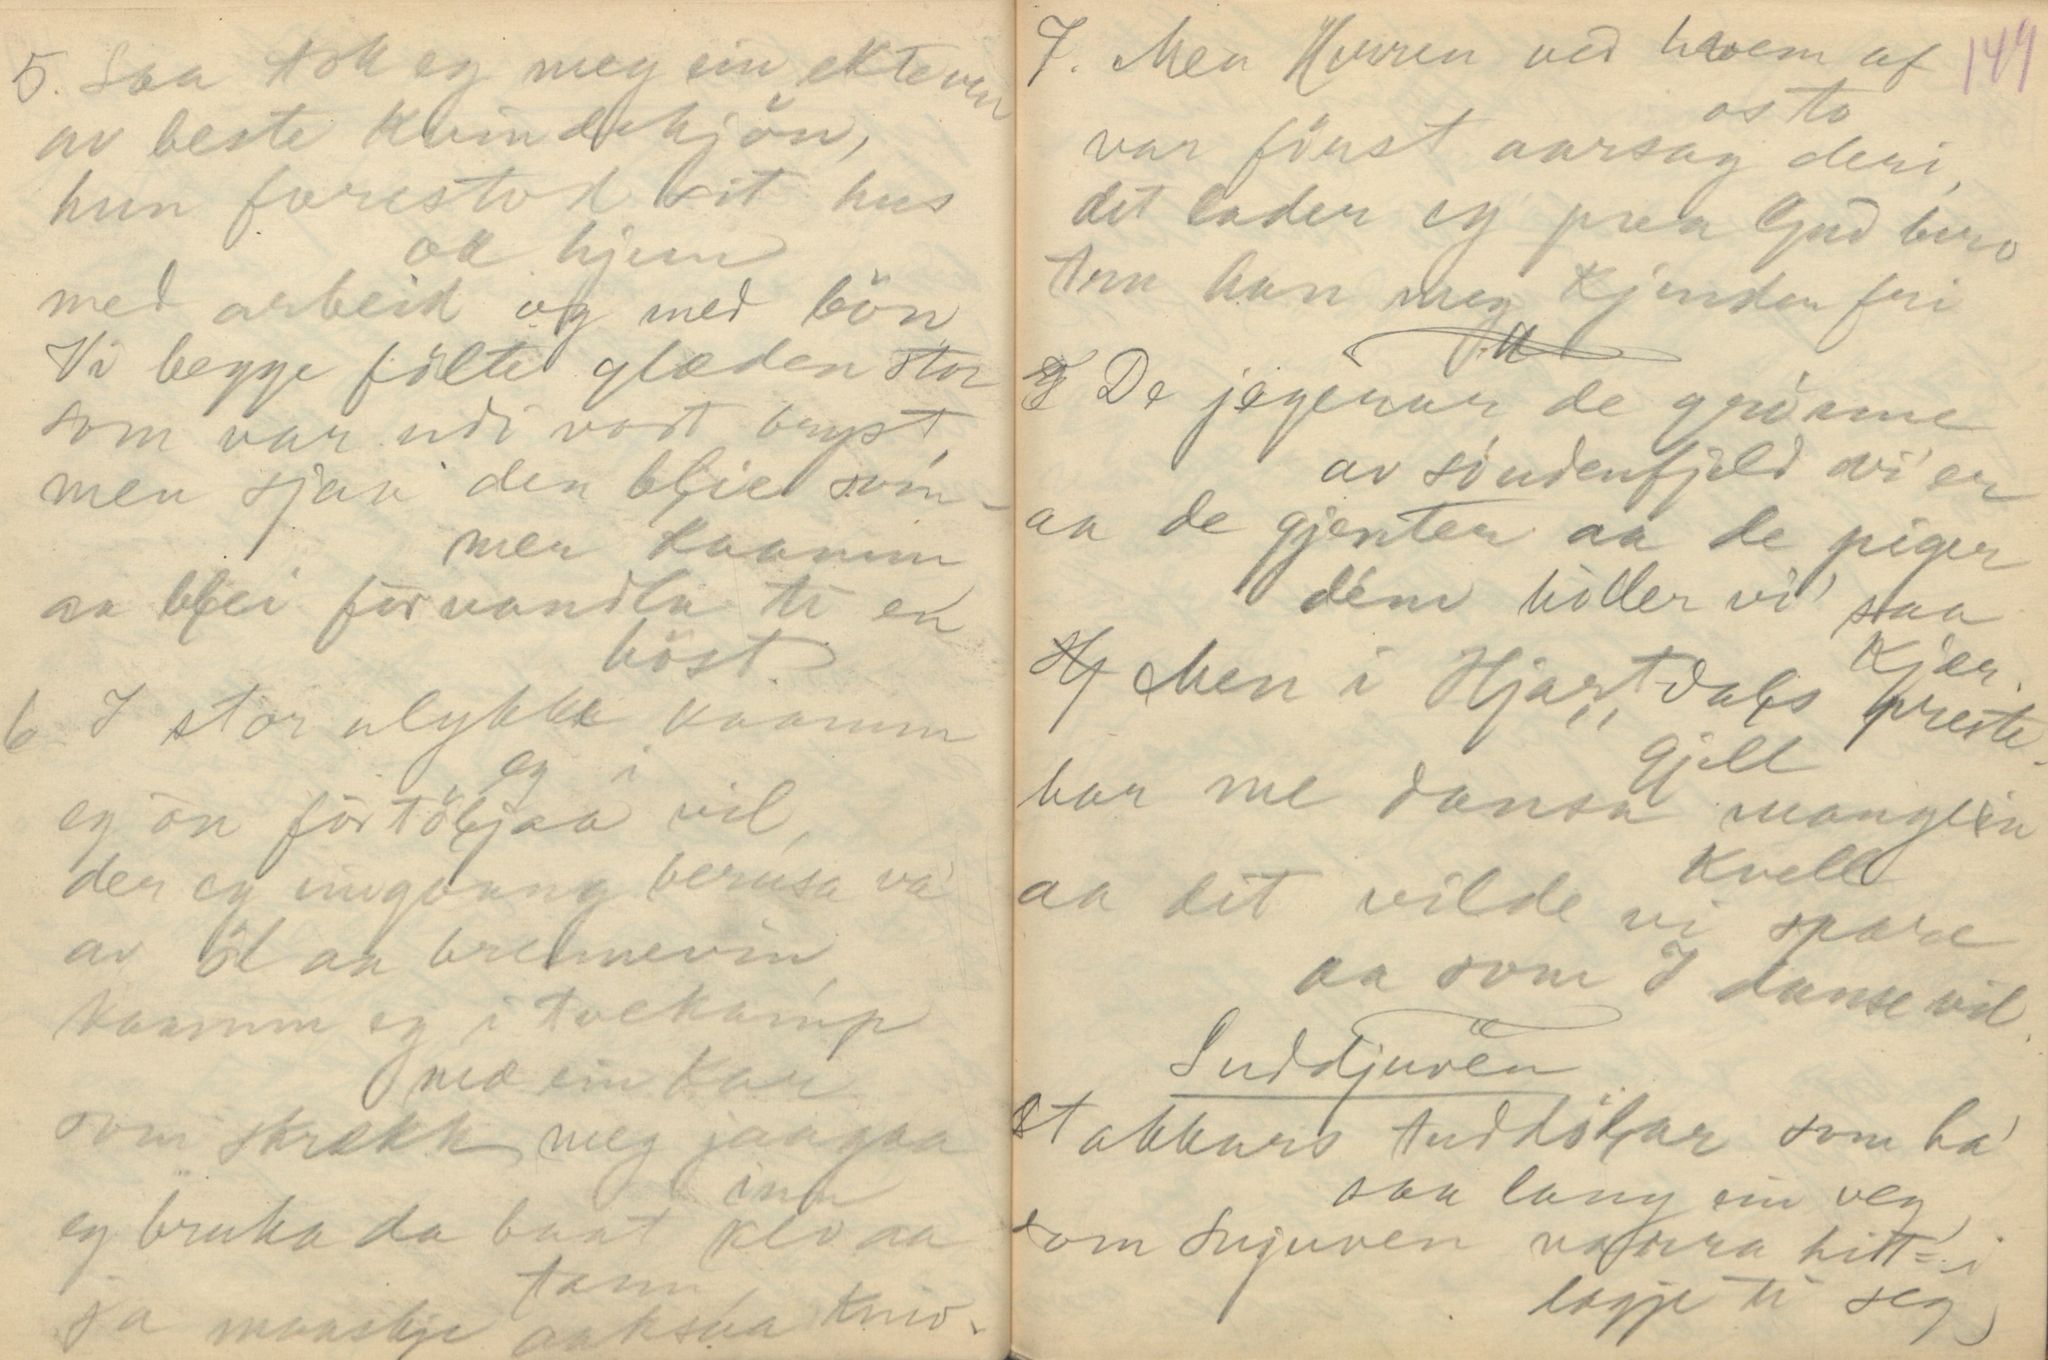 5. Saa tok eg meg ein ekteven
av beste kvindekjön,
hun forestod sit hus
ok hjem
med arbeid og med bön
Vi begge fölte glæden stor
som var udi vort bryst,
men sjaa den blei söm-
mer kaamm
aa blei förvandla ti en
höst.
6. I stor ulykke kaamm
eg i
eg ön förtöljaa vil,
der eg eingaang berusa va'
av öl aa brennevin
kaamm eg i tvekamp
mæ ein kar
som skrækk meg jaagaa
inn
eg bruka da baat klo aa
tann
ja maaskje aaksaa kniv.
149
7. Men Herren ved hvem af
os to
var först aarsag deri,
det lader eg paa Gud bero
tru han meg kjender fri
8 De jegerar de grönne
av söndenfjeld vi er
aa de gjenter aa de piger
dem höller vi saa
kjær.
Men i Hjartdals preste-
gjell
har me dansa mangein
kvell
aa det vilde vi spare
aa som I danse vil.
Suddjuven
Stakkars tuddölar som ha'
saa lang ein veg
som Sujuven vaara hitt-i
leggje ti seg